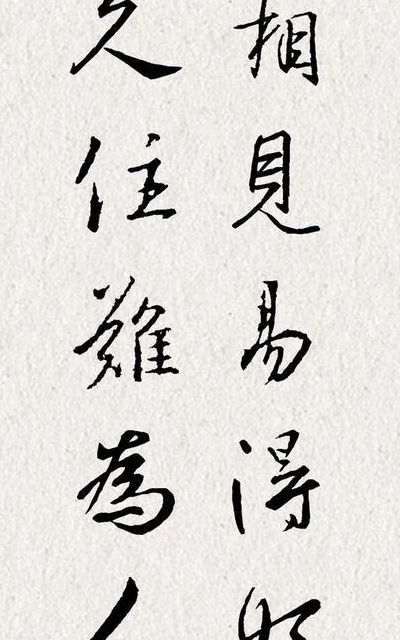 相見易得好
久住難為人